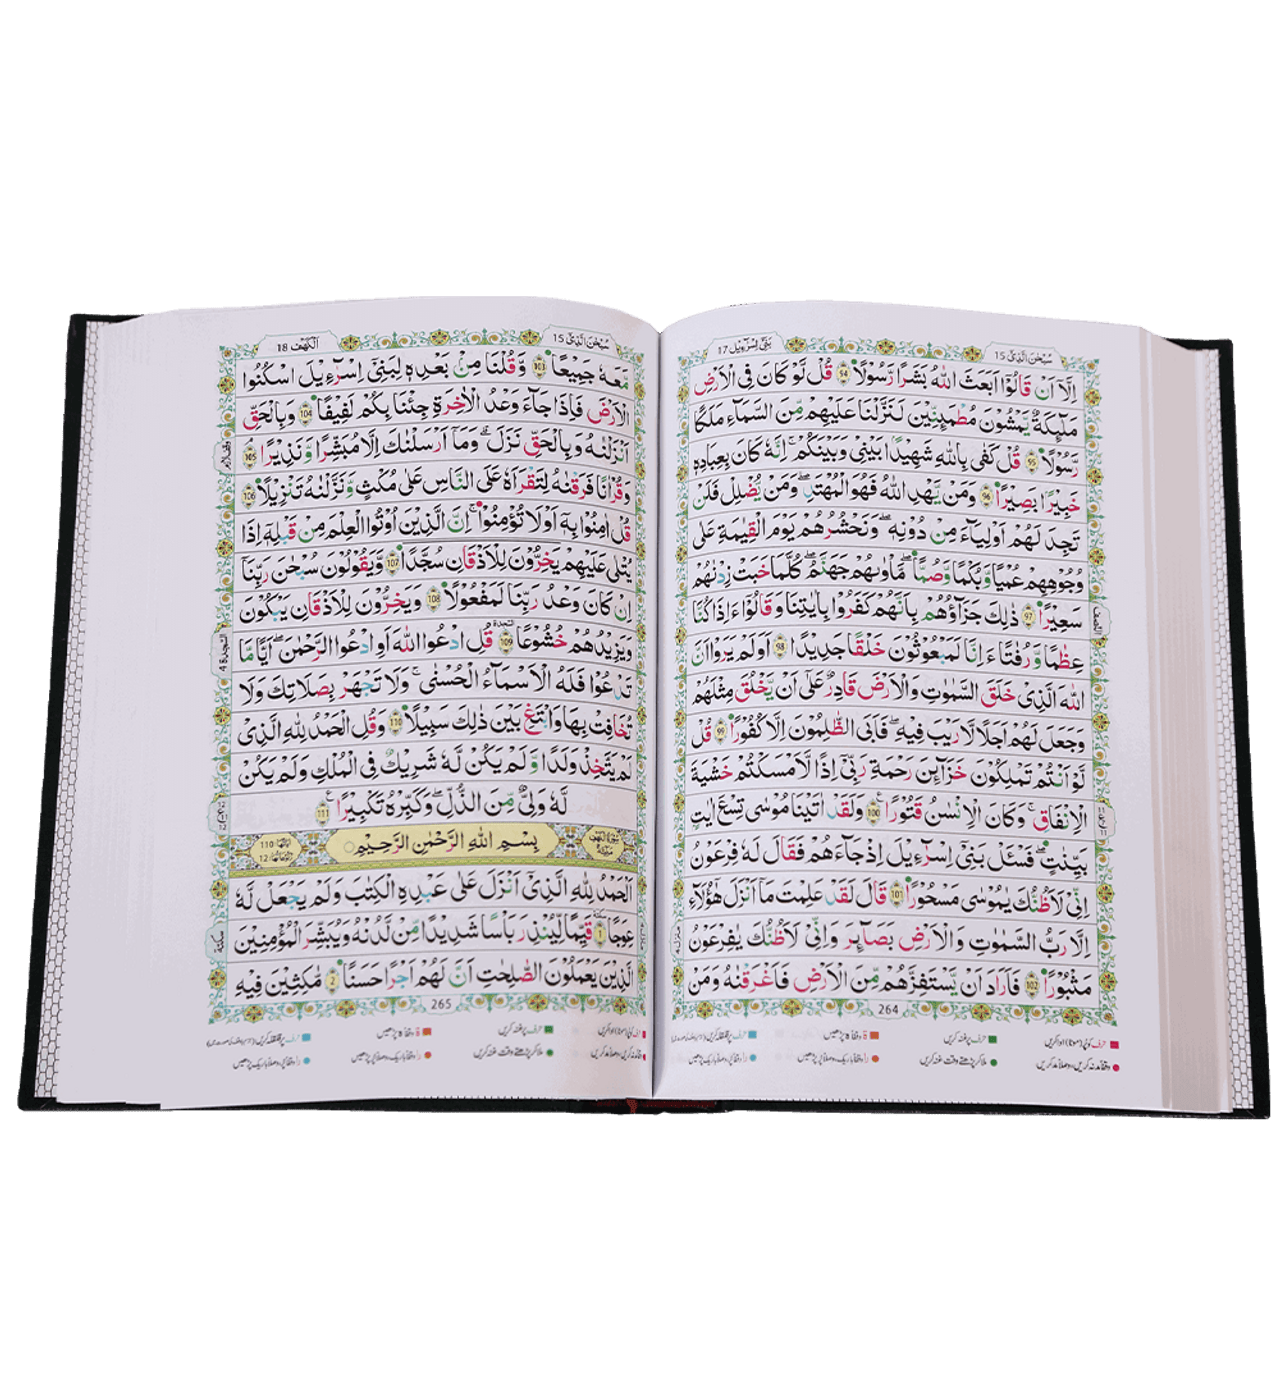 سُبْحٰنَ الَّذِىْٓ 15
بَنِىْٓ اِسْرَآءِيْل 17
اِلَّاۤ اَنْ قَالُوْۤا اَبَعَثَ اللّٰهُ بَشَرًا رَّسُوْلًا 94 قُلْ لَّوْ كَانَ فِى الْاَرْضِ
مَلٰٓئِكَةٌ يَّمْشُوْنَ مُطْمَئِنِّيْنَ لَنَزَّلْنَا عَلَيْهِمْ مِّنَ السَّمَآءِ مَلَكًا
رَّسُوْلًا 95 قُلْ كَفٰى بِاللّٰهِ شَهِيْدًۢا بَيْنِىْ وَبَيْنَكُمْ ؕ اِنَّهٗ كَانَ بِعِبَادِهٖ
خَبِيْرًۢا بَصِيْرًا 96 وَمَنْ يَّهْدِ اللّٰهُ فَهُوَ الْمُهْتَدِ ۚ وَمَنْ يُّضْلِلْ فَلَنْ
تَجِدَ لَهُمْ اَوْلِيَآءَ مِنْ دُوْنِهٖ ؕ وَنَحْشُرُهُمْ يَوْمَ الْقِيٰمَةِ عَلٰى
وُجُوْهِهِمْ عُمْيًا وَّبُكْمًا وَّصُمًّا ؕ مَاْوٰٮهُمْ جَهَنَّمُ ؕ كُلَّمَا خَبَتْ زِدْنٰهُمْ
سَعِيْرًا 97 ذٰلِكَ جَزَآؤُهُمْ بِاَنَّهُمْ كَفَرُوْا بِاٰيٰتِنَا وَقَالُوْۤا ءَاِذَا كُنَّا
عِظٰمًا وَّرُفٰتًا ءَاِنَّا لَمَبْعُوْثُوْنَ خَلْقًا جَدِيْدًا 98 اَوَلَمْ يَرَوْا اَنَّ
اللّٰهَ الَّذِىْ خَلَقَ السَّمٰوٰتِ وَالْاَرْضَ قَادِرٌ عَلٰۤى اَنْ يَّخْلُقَ مِثْلَهُمْ
وَجَعَلَ لَهُمْ اَجَلًا لَّا رَيْبَ فِيْهِ ؕ فَاَبَى الظّٰلِمُوْنَ اِلَّا كُفُوْرًا 99 قُلْ
لَّوْ اَنْتُمْ تَمْلِكُوْنَ خَزَآئِنَ رَحْمَةِ رَبِّىْۤ اِذًا لَّاَمْسَكْتُمْ خَشْيَةَ
الْاِنْفَاقِ ؕ وَكَانَ الْاِنْسٰنُ قَتُوْرًا 100 وَلَقَدْ اٰتَيْنَا مُوْسٰى تِسْعَ اٰيٰتٍۭ
بَيِّنٰتٍ فَسْئَلْ بَنِىْۤ اِسْرَآءِيْلَ اِذْ جَآءَهُمْ فَقَالَ لَهٗ فِرْعَوْنُ
اِنِّىْ لَاَظُنُّكَ يٰمُوْسٰى مَسْحُوْرًا 101 قَالَ لَقَدْ عَلِمْتَ مَاۤ اَنْزَلَ هٰۤؤُلَآءِ
اِلَّا رَبُّ السَّمٰوٰتِ وَالْاَرْضِ بَصَآئِرَ ۚ وَاِنِّىْ لَاَظُنُّكَ يٰفِرْعَوْنُ
مَثْبُوْرًا 102 فَاَرَادَ اَنْ يَّسْتَفِزَّهُمْ مِّنَ الْاَرْضِ فَاَغْرَقْنٰهُ وَمَنْ
264
سُبْحٰنَ الَّذِىْٓ 15
اَلْكَهْف 18
مَّعَهٗ جَمِيْعًا 103 وَّقُلْنَا مِنْۢ بَعْدِهٖ لِبَنِىْۤ اِسْرَآءِيْلَ اسْكُنُوا
الْاَرْضَ فَاِذَا جَآءَ وَعْدُ الْاٰخِرَةِ جِئْنَا بِكُمْ لَفِيْفًا 104 وَبِالْحَقِّ
اَنْزَلْنٰهُ وَبِالْحَقِّ نَزَلَ ؕ وَمَاۤ اَرْسَلْنٰكَ اِلَّا مُبَشِّرًا وَّنَذِيْرًا 105
وَقُرْاٰنًا فَرَقْنٰهُ لِتَقْرَاَهٗ عَلَى النَّاسِ عَلٰى مُكْثٍ وَّنَزَّلْنٰهُ تَنْزِيْلًا 106
قُلْ اٰمِنُوْا بِهٖۤ اَوْ لَا تُؤْمِنُوْا ؕ اِنَّ الَّذِيْنَ اُوْتُوا الْعِلْمَ مِنْ قَبْلِهٖۤ اِذَا
يُتْلٰى عَلَيْهِمْ يَخِرُّوْنَ لِلْاَذْقَانِ سُجَّدًا 107 وَّيَقُوْلُوْنَ سُبْحٰنَ رَبِّنَاۤ
اِنْ كَانَ وَعْدُ رَبِّنَا لَمَفْعُوْلًا 108 وَيَخِرُّوْنَ لِلْاَذْقَانِ يَبْكُوْنَ
وَيَزِيْدُهُمْ خُشُوْعًا 109 قُلِ ادْعُوا اللّٰهَ اَوِ ادْعُوا الرَّحْمٰنَ ؕ اَيًّا مَّا
تَدْعُوْا فَلَهُ الْاَسْمَآءُ الْحُسْنٰى ۚ وَلَا تَجْهَرْ بِصَلَاتِكَ وَلَا
تُخَافِتْ بِهَا وَابْتَغِ بَيْنَ ذٰلِكَ سَبِيْلًا 110 وَقُلِ الْحَمْدُ لِلّٰهِ الَّذِىْ
لَمْ يَتَّخِذْ وَلَدًا وَّلَمْ يَكُنْ لَّهٗ شَرِيْكٌ فِى الْمُلْكِ وَلَمْ يَكُنْ
لَّهٗ وَلِىٌّ مِّنَ الذُّلِّ ؕ وَكَبِّرْهُ تَكْبِيْرًا 111
بِسْمِ اللّٰهِ الرَّحْمٰنِ الرَّحِيْمِ
110
12
اَلْحَمْدُ لِلّٰهِ الَّذِىْۤ اَنْزَلَ عَلٰى عَبْدِهِ الْكِتٰبَ وَلَمْ يَجْعَلْ لَّهٗ
عِوَجًا 1 قَيِّمًا لِّيُنْذِرَ بَاْسًا شَدِيْدًا مِّنْ لَّدُنْهُ وَيُبَشِّرَ الْمُؤْمِنِيْنَ
الَّذِيْنَ يَعْمَلُوْنَ الصّٰلِحٰتِ اَنَّ لَهُمْ اَجْرًا حَسَنًا 2 مّٰكِثِيْنَ فِيْهِ
265